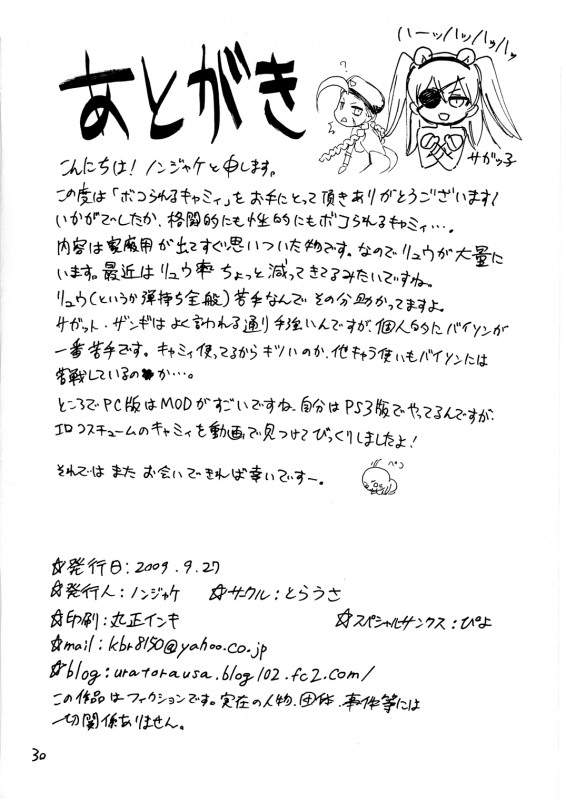 ハーッハッハッハッ
あとがき
?
サガッ子
こんにちは!ノンジャケと申します。
この度は「ボコられるキャミィ」をお手にとって頂きありがとうございます!
いかがでしたか、格闘的にも性的にもボコられるキャミィ…。
内容は家庭用が出てすぐ思いついた物です。なのでリュウが大量に
います。最近はリュウ率ちょっと減ってきてるみたいですね。
リュウ(というか弾持ち全般)苦手なんでその分助かってますよ。
サガット・ザンギはよく言われる通り手強いんですが、個人的にバイソンが
一番苦手です。キャミィ使ってるからキツいのか、他キャラ使いもバイソンには
苦戦しているのか…。
ところでPC版はMODがすごいですね、自分はPS3版でやってるんですが、
エロコスチュームのキャミィを動画で見つけてびっくりしましたよ!
それでは また お会いできれば幸いですー。
ペコ
☆発行日:2009.9.27
☆発行人:ノンジャケ ☆サークル:とらうさ
☆印刷:丸正インキ ☆スペシャルサンクス:ぴよ
☆mail:kbr8150@yahoo.co.jp
☆blog:uratorausa.blog102.fc2.com/
この作品はフィクションです。実在の人物、団体、事件等には
一切関係ありません。
30